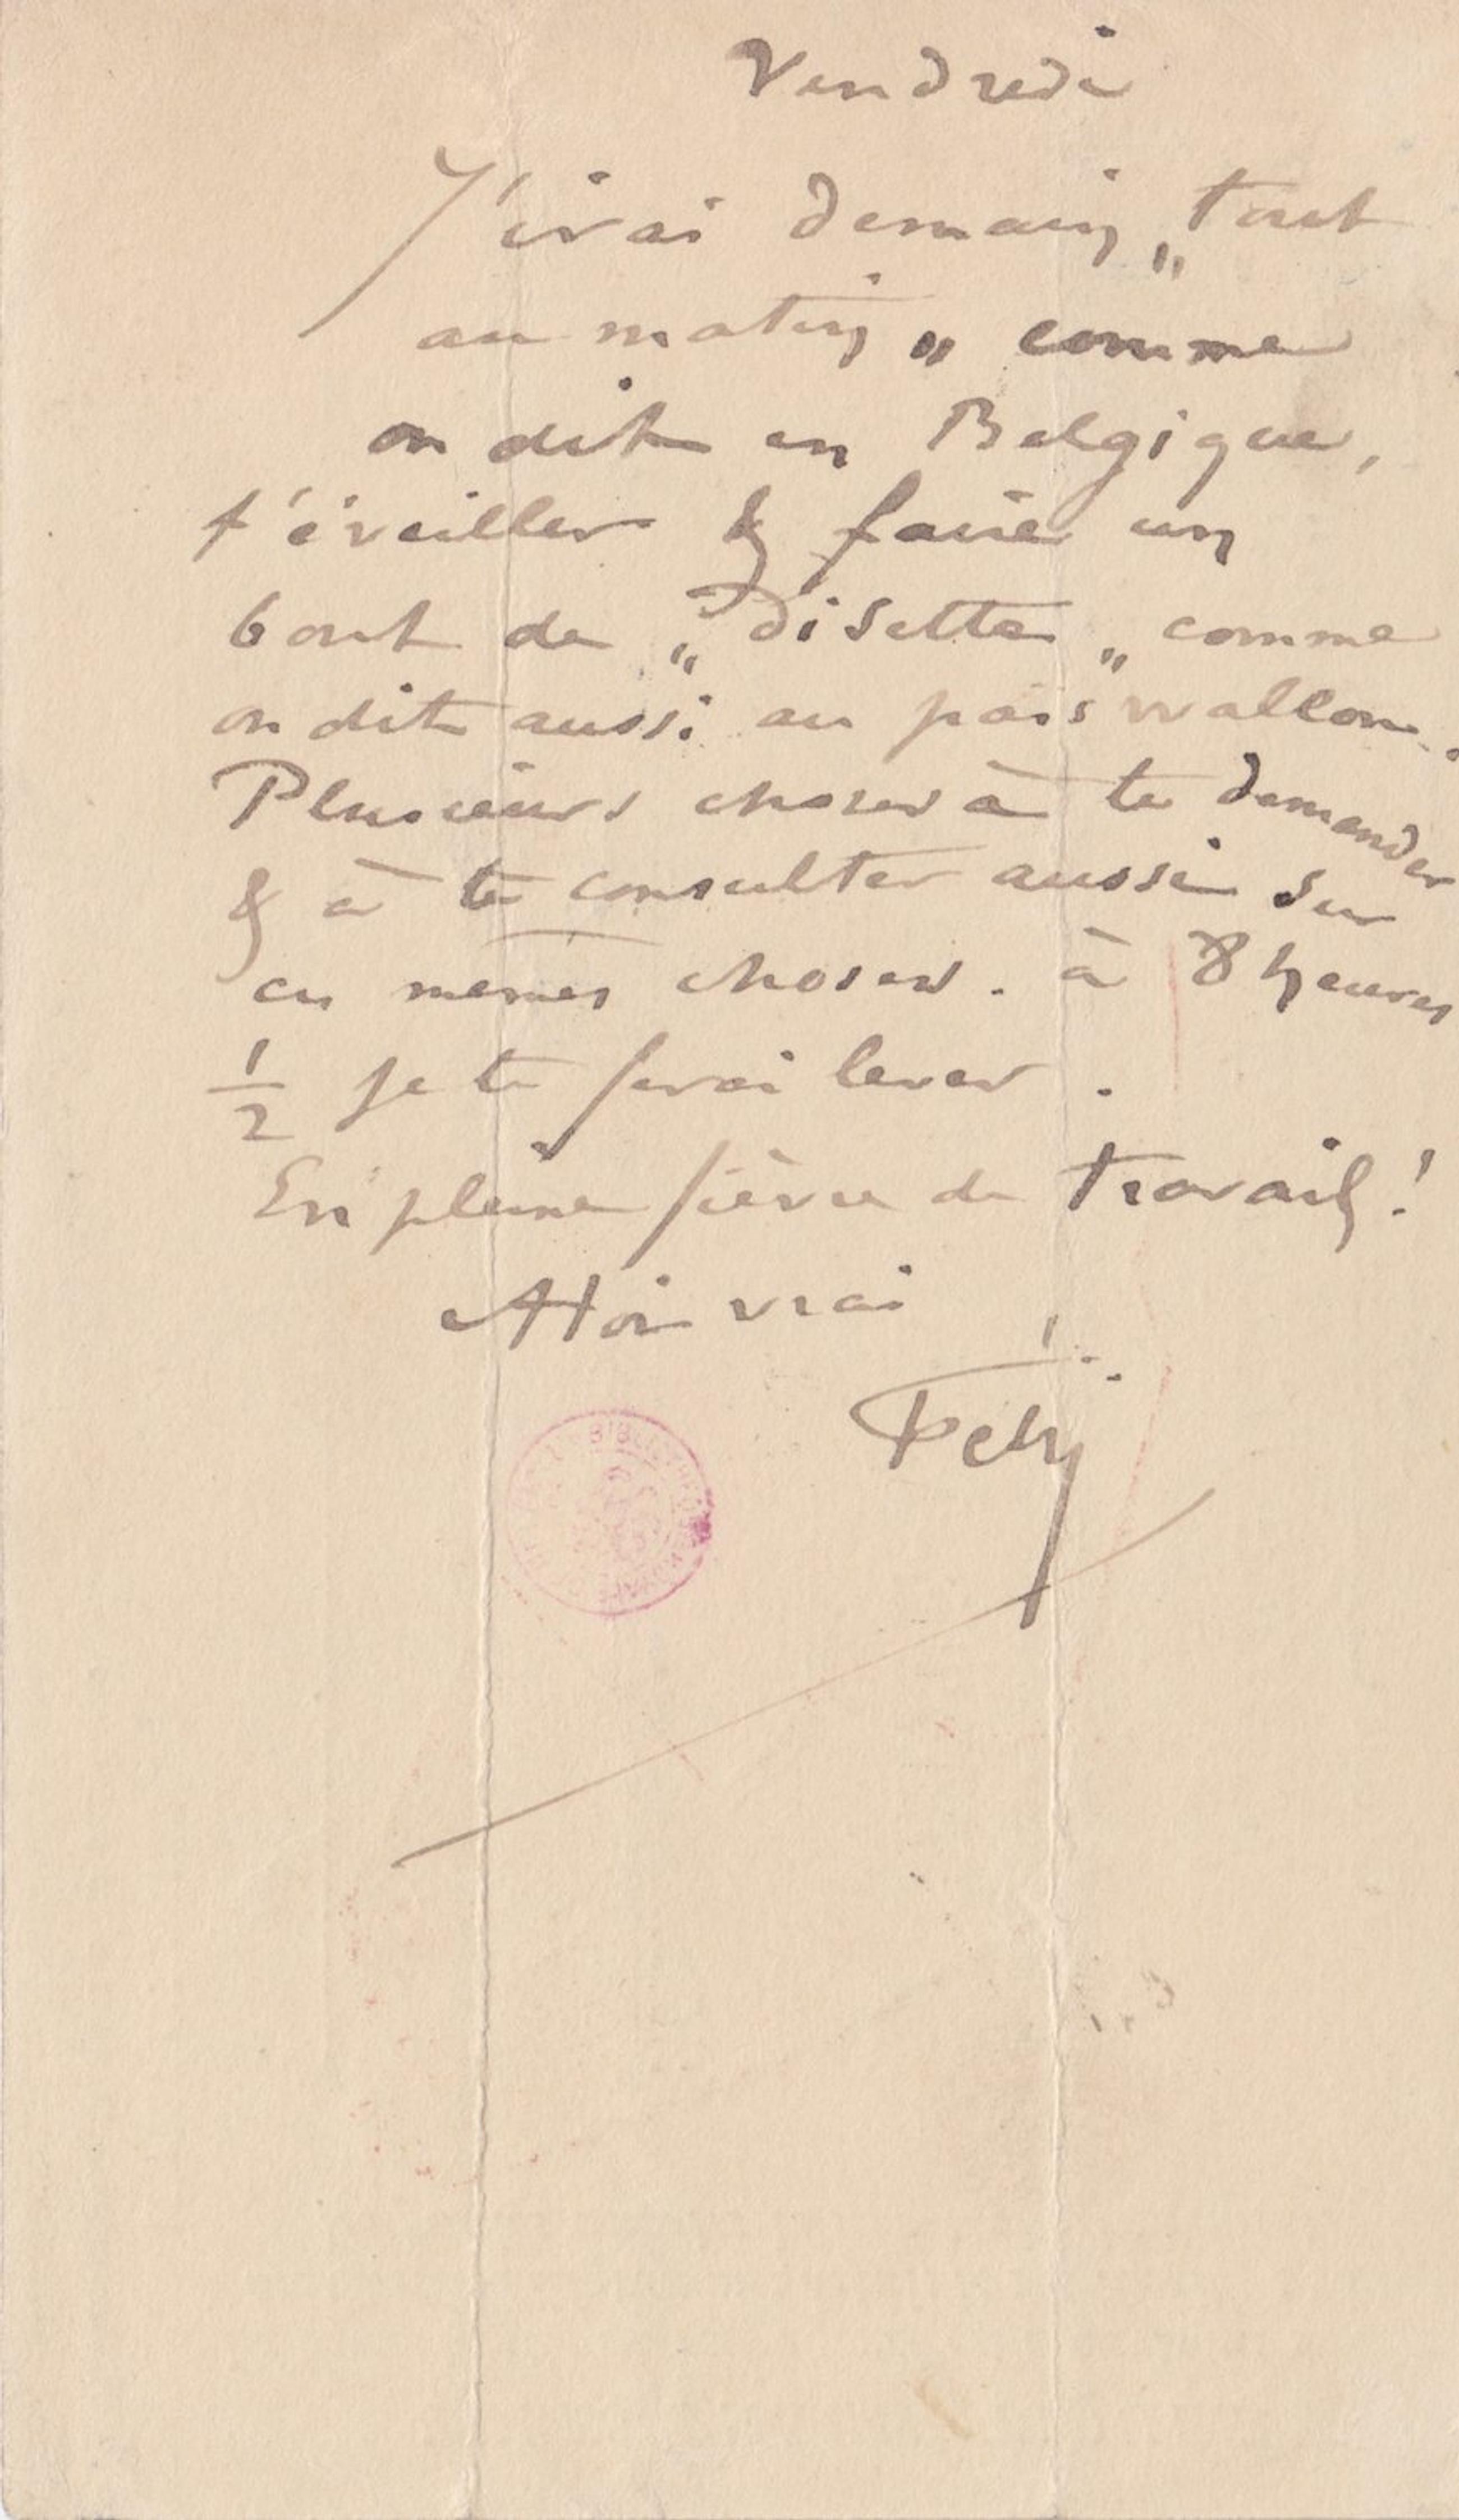 Vendredi
J'irai demain „tout
au matin„ comme
on dit en Belgique,
t'éveiller & faire un
bout de „Disette„ comme
on dit aussi au païs wallon.
Plusieurs choses à te demander
& à te consulter aussi sur
ces mêmes choses. à 8 heures
1/2 je te ferai lever.
En pleine fièvre de travail!
A toi vrai
Fély